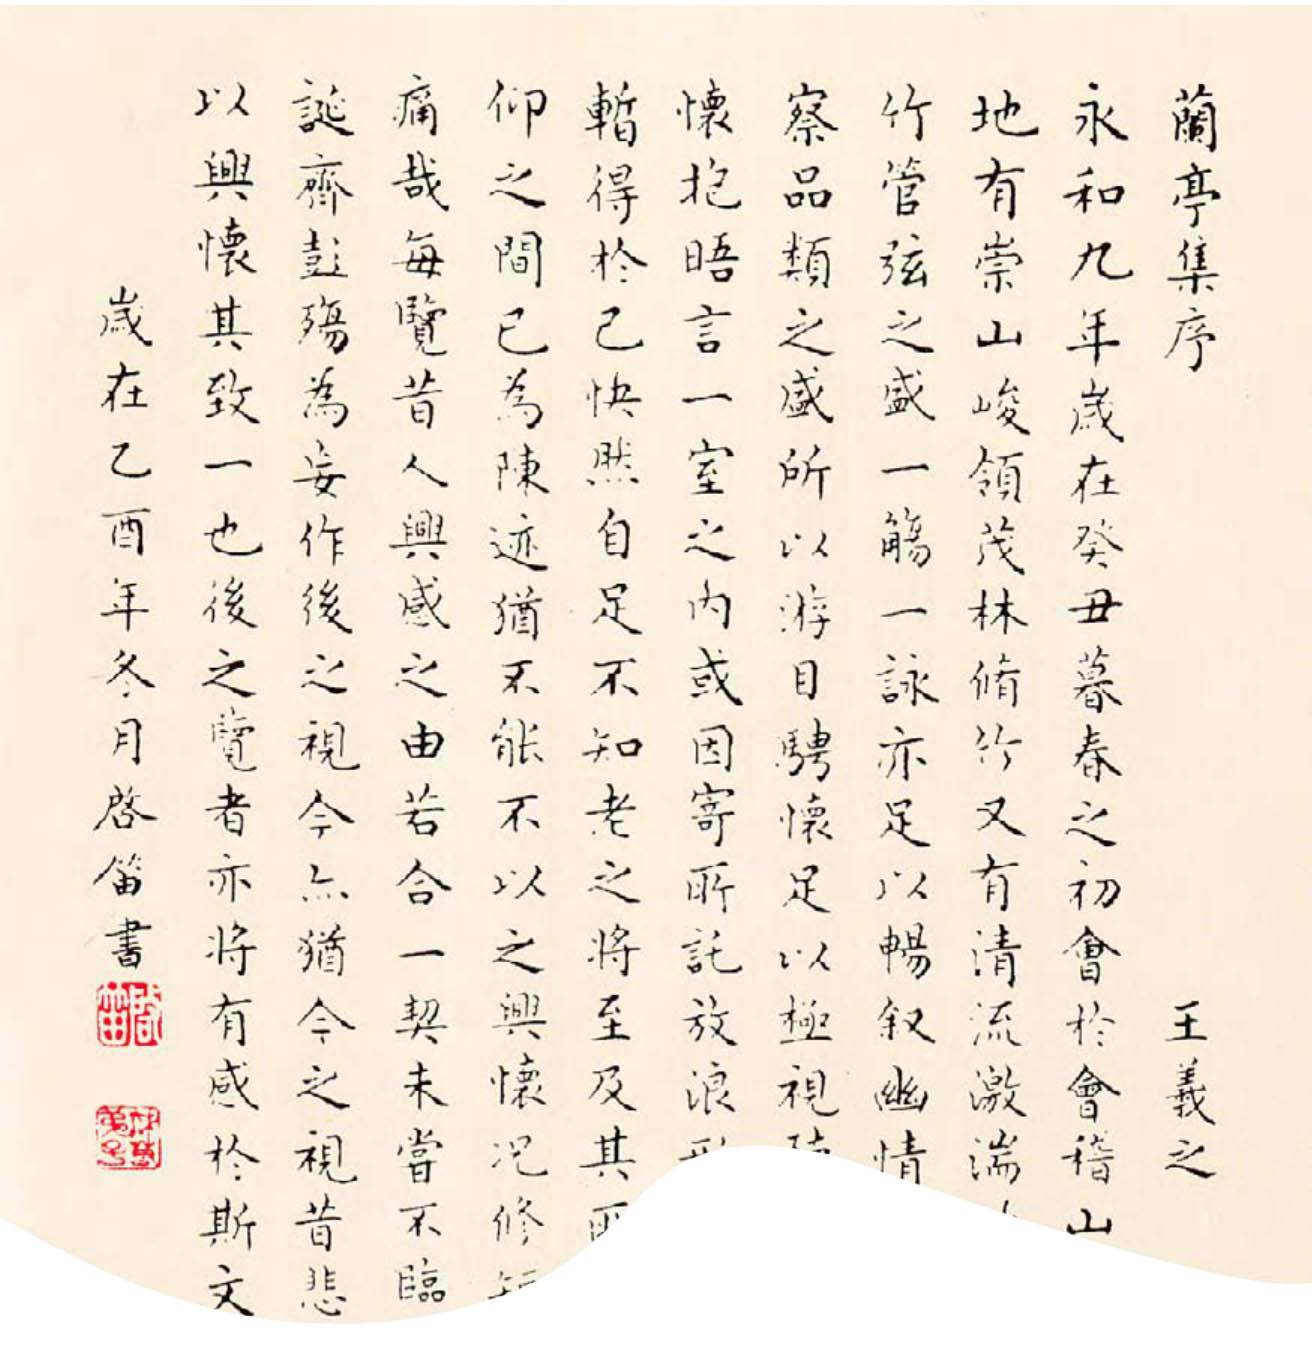 蘭亭集序
王羲之
永和九年歲在癸丑暮春之初會於會稽山
地有崇山峻領茂林脩竹又有清流激湍
竹管弦之盛一觴一詠亦足以暢叙幽情
察品類之盛所以游目騁懷足以極視
懷抱晤言一室之內或因寄所託放浪
暫得於己快然自足不知老之將至及其所
仰之間已為陳迹猶不能不以之興懷况修短
痛哉每覽昔人興感之由若合一契未嘗不臨
誕齊彭殤為妄作後之視今亦猶今之視昔悲
以興懷其致一也後之覽者亦將有感於斯文
歲在乙酉年冬月啓笛書